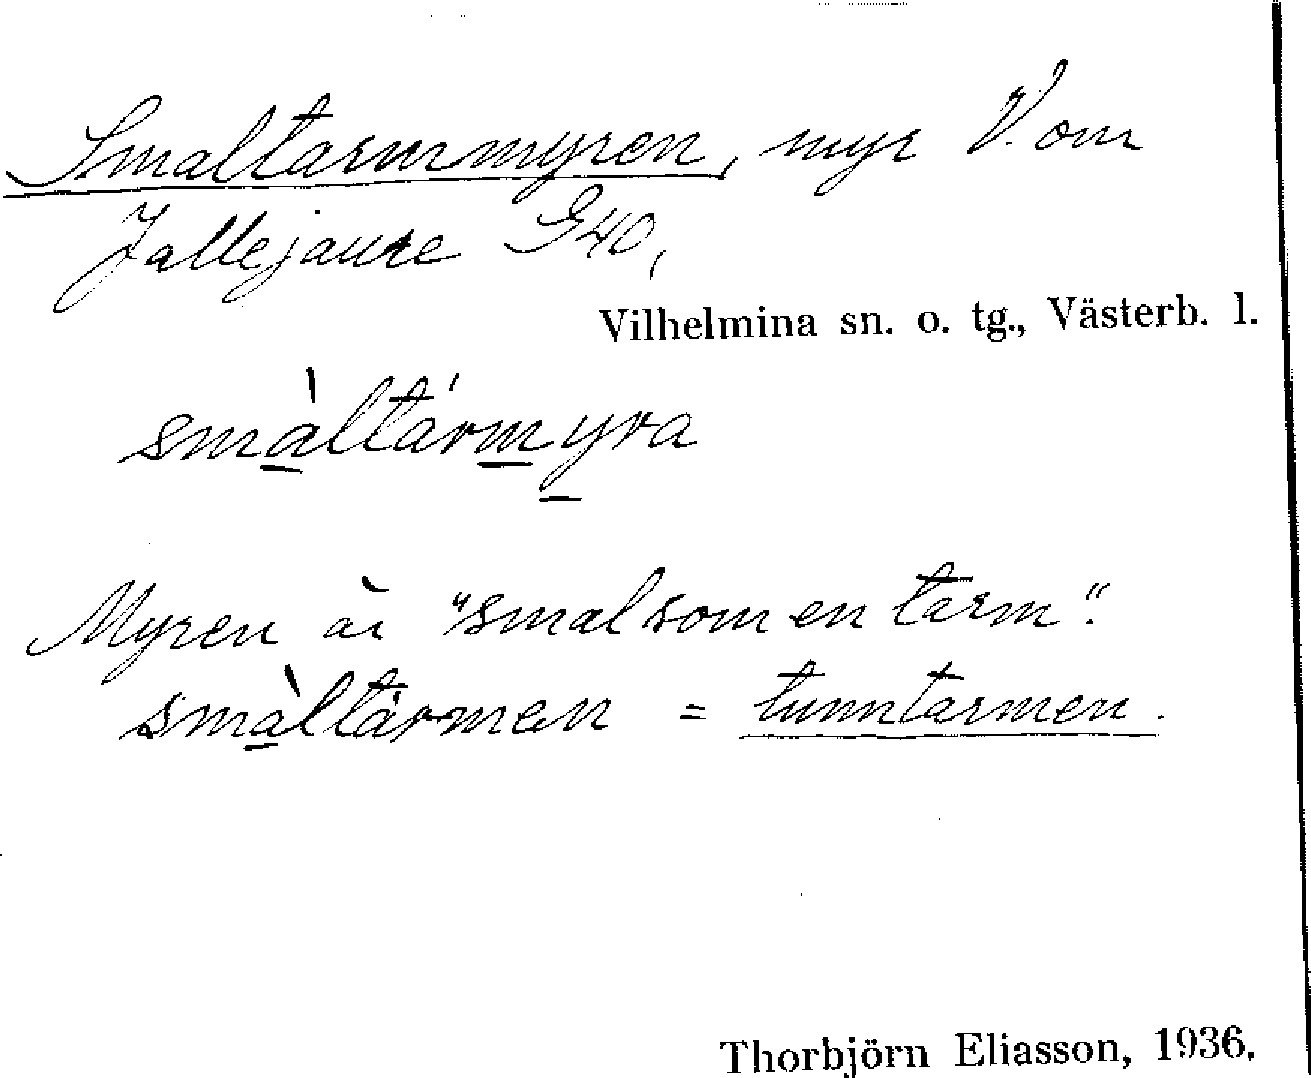 Smaltarmmyren, myr V. om
Jallejaure G40,
Vilhelmina sn. o. tg., Västerb. l.
smàltármyra
Myren är "smal som en tarm".
smàltármen = tunntarmen.
Thorbjörn Eliasson, 1936.